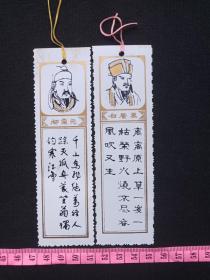 柳宗元
千山鳥飛絕萬徑人
踪滅孤舟蓑笠翁獨
釣寒江雪
白居易
離離原上草一歲一
枯榮野火燒不盡春
風吹又生